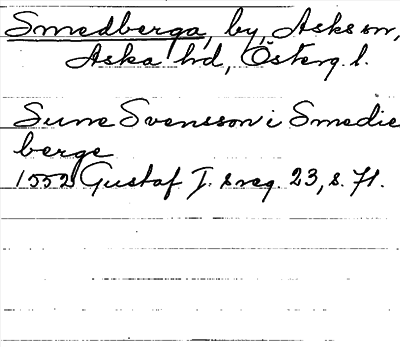 Smedberga, by, Asks sn,
Aska hd, Österg. l.
Sune Svensson i Smedie
berge
1552 Gustaf I. s reg. 23, s. 71.